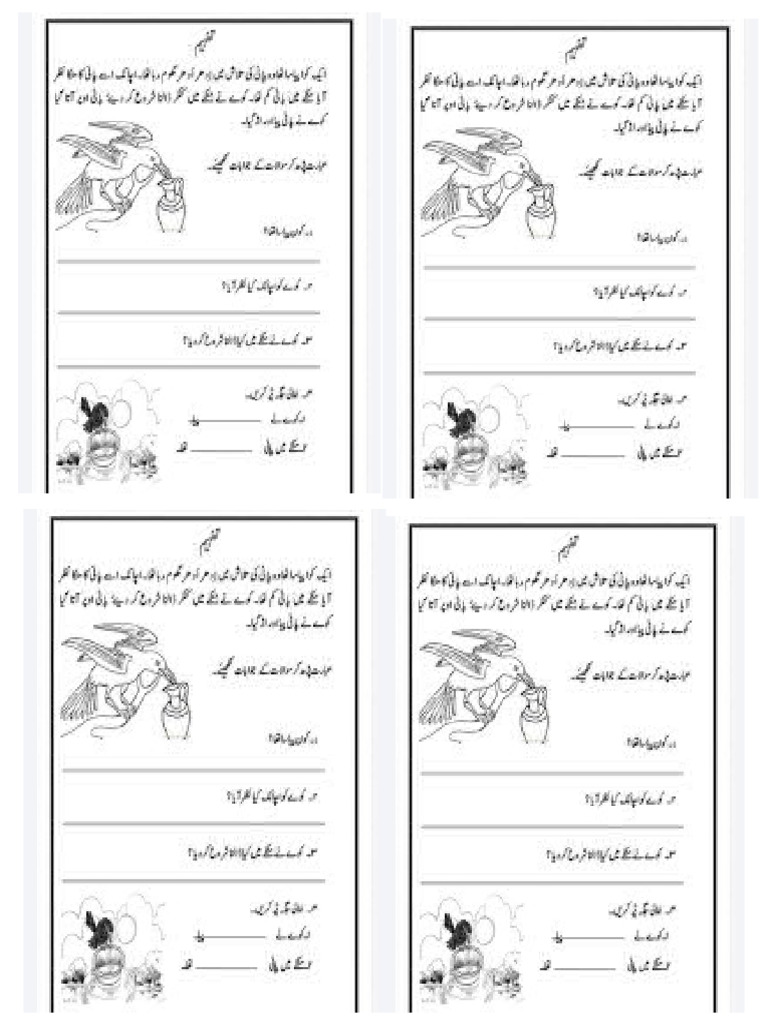 تفہیم
ایک کوا پیاسا تھا وہ پانی کی تلاش میں اِدھر اُدھر گھوم رہا تھا۔ اچانک اسے پانی کا مٹکا نظر
آیا مٹکے میں پانی کم تھا۔ کوے نے مٹکے میں کنکر ڈالنا شروع کر دیے' پانی اوپر آتا گیا
کوے نے پانی پیا اور اڑ گیا۔
عبارت پڑھ کر سوالات کے جوابات لکھیئے۔
۱۔ کون پیاسا تھا؟
۲۔ کوے کو اچانک کیا نظر آیا؟
۳۔ کوے نے مٹکے میں کیا ڈالنا شروع کر دیا؟
۴۔ خالی جگہ پُر کریں۔
۱۔ کوے نے ــــــــــ پیا۔
۲۔ مٹکے میں پانی ــــــــــ تھا۔
تفہیم
ایک کوا پیاسا تھا وہ پانی کی تلاش میں اِدھر اُدھر گھوم رہا تھا۔ اچانک اسے پانی کا مٹکا نظر
آیا مٹکے میں پانی کم تھا۔ کوے نے مٹکے میں کنکر ڈالنا شروع کر دیے' پانی اوپر آتا گیا
کوے نے پانی پیا اور اڑ گیا۔
عبارت پڑھ کر سوالات کے جوابات لکھیئے۔
۱۔ کون پیاسا تھا؟
۲۔ کوے کو اچانک کیا نظر آیا؟
۳۔ کوے نے مٹکے میں کیا ڈالنا شروع کر دیا؟
۴۔ خالی جگہ پُر کریں۔
۱۔ کوے نے ــــــــــ پیا۔
۲۔ مٹکے میں پانی ــــــــــ تھا۔
تفہیم
ایک کوا پیاسا تھا وہ پانی کی تلاش میں اِدھر اُدھر گھوم رہا تھا۔ اچانک اسے پانی کا مٹکا نظر
آیا مٹکے میں پانی کم تھا۔ کوے نے مٹکے میں کنکر ڈالنا شروع کر دیے' پانی اوپر آتا گیا
کوے نے پانی پیا اور اڑ گیا۔
عبارت پڑھ کر سوالات کے جوابات لکھیئے۔
۱۔ کون پیاسا تھا؟
۲۔ کوے کو اچانک کیا نظر آیا؟
۳۔ کوے نے مٹکے میں کیا ڈالنا شروع کر دیا؟
۴۔ خالی جگہ پُر کریں۔
۱۔ کوے نے ــــــــــ پیا۔
۲۔ مٹکے میں پانی ــــــــــ تھا۔
تفہیم
ایک کوا پیاسا تھا وہ پانی کی تلاش میں اِدھر اُدھر گھوم رہا تھا۔ اچانک اسے پانی کا مٹکا نظر
آیا مٹکے میں پانی کم تھا۔ کوے نے مٹکے میں کنکر ڈالنا شروع کر دیے' پانی اوپر آتا گیا
کوے نے پانی پیا اور اڑ گیا۔
عبارت پڑھ کر سوالات کے جوابات لکھیئے۔
۱۔ کون پیاسا تھا؟
۲۔ کوے کو اچانک کیا نظر آیا؟
۳۔ کوے نے مٹکے میں کیا ڈالنا شروع کر دیا؟
۴۔ خالی جگہ پُر کریں۔
۱۔ کوے نے ــــــــــ پیا۔
۲۔ مٹکے میں پانی ــــــــــ تھا۔